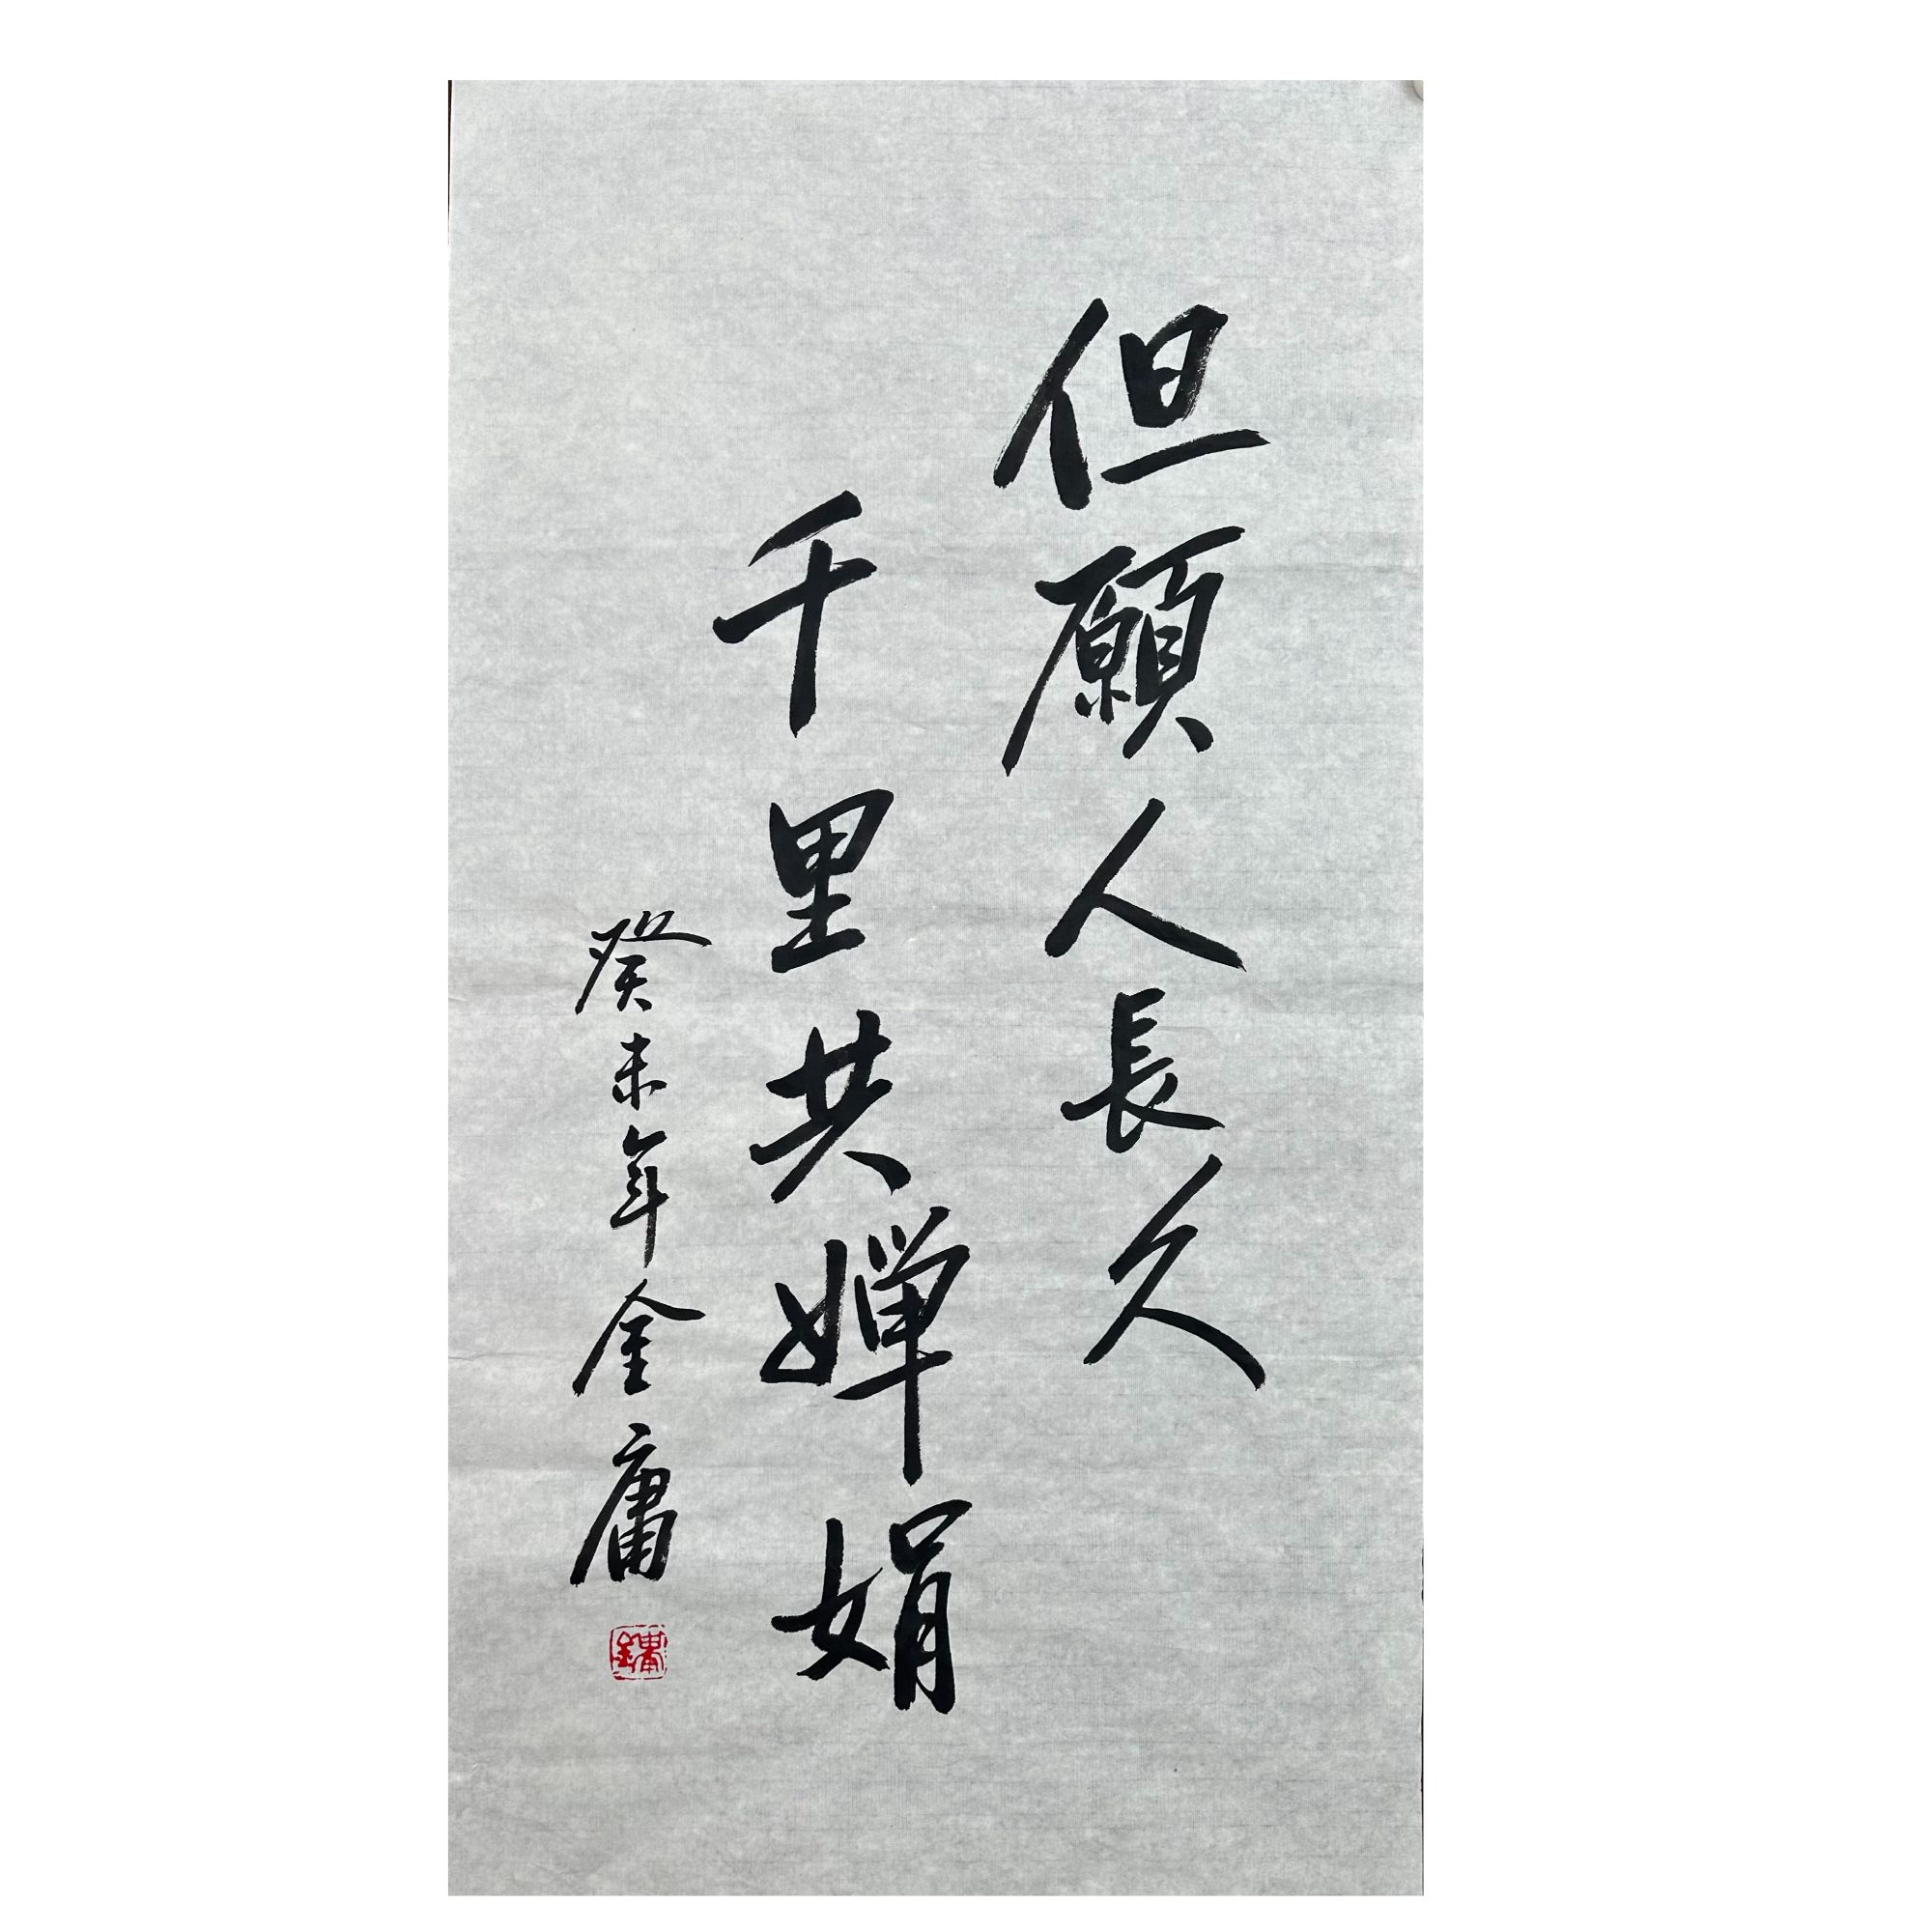 但願人長久
千里共嬋娟
癸未年金庸
金庸